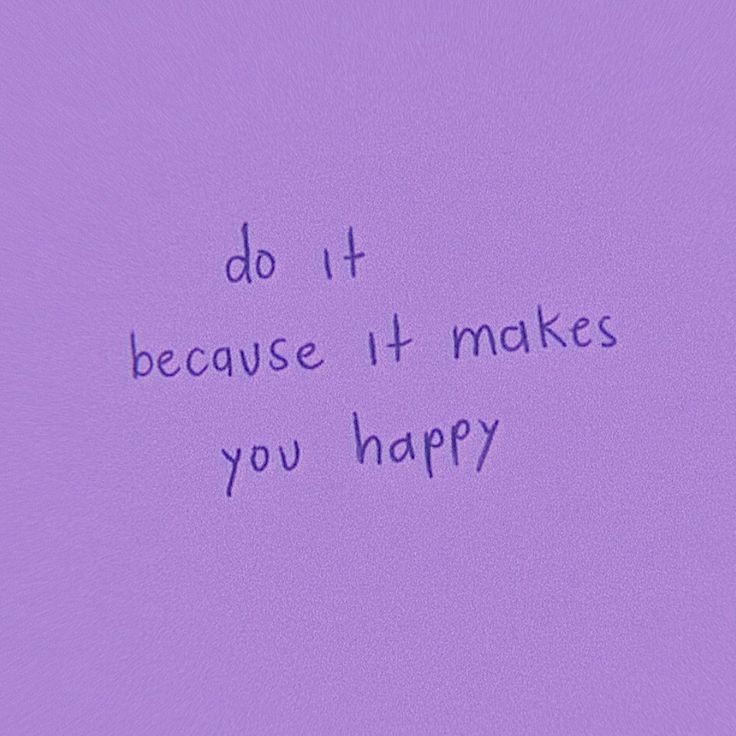 do it
because it makes
you happy